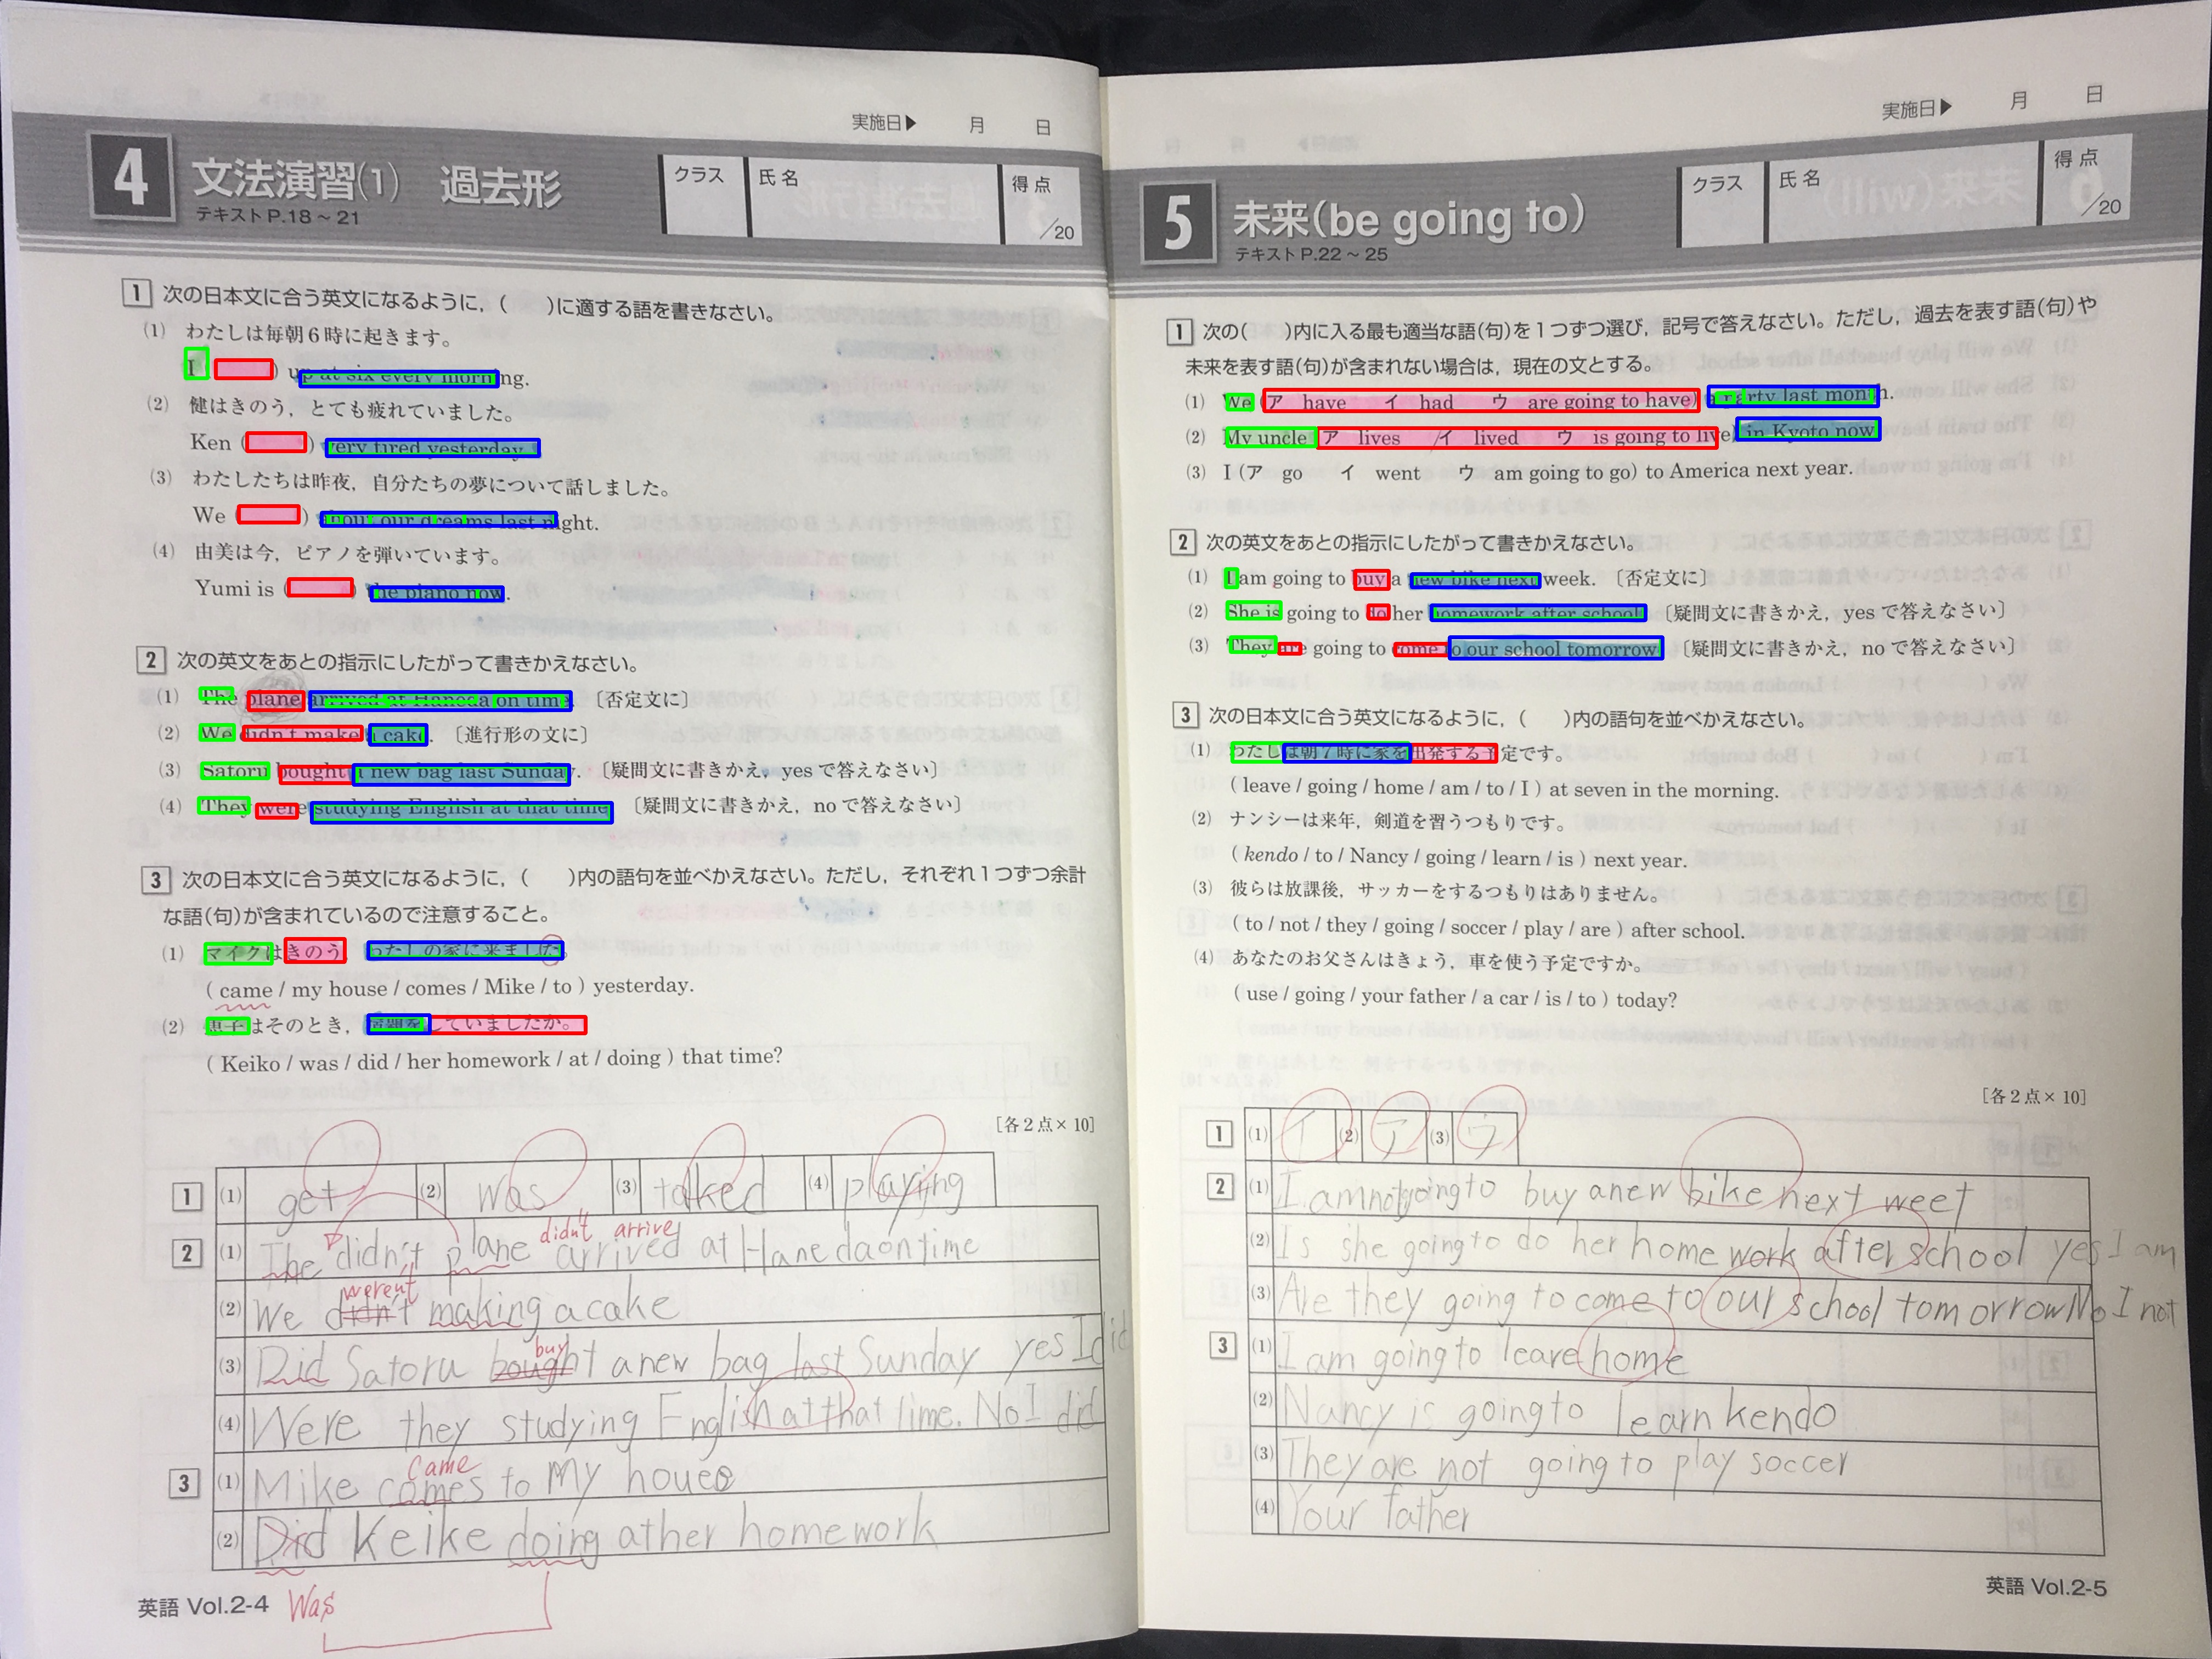 実施日▶ 月 日
4 文法演習(1) 過去形
テキストP.18～21
クラス 氏名 得点 /20
1 次の日本文に合う英文になるように，( )に適する語を書きなさい。
(1) わたしは毎朝6時に起きます。
I ) up at six every morning.
(2) 健はきのう，とても疲れていました。
Ken ( ) very tired yesterday.
(3) わたしたちは昨夜，自分たちの夢について話しました。
We ( ) about our dreams last night.
(4) 由美は今，ピアノを弾いています。
Yumi is ( ) the piano now.
2 次の英文をあとの指示にしたがって書きかえなさい。
(1) The plane arrived at Haneda on time. 〔否定文に〕
(2) We didn't make a cake. 〔進行形の文に〕
(3) Satoru bought a new bag last Sunday. 〔疑問文に書きかえ，yesで答えなさい〕
(4) They were studying English at that time. 〔疑問文に書きかえ，noで答えなさい〕
3 次の日本文に合う英文になるように，( )内の語句を並べかえなさい。ただし，それぞれ1つずつ余計
な語(句)が含まれているので注意すること。
(1) マイクはきのう，わたしの家に来ました。
( came / my house / comes / Mike / to ) yesterday.
(2) 恵子はそのとき，宿題をしていましたか。
( Keiko / was / did / her homework / at / doing ) that time?
[各2点×10]
1 (1) get (2) was (3) talked (4) playing
didn't arrive
2 (1) The didn't plane arrived at Hanedaontime
weren't
(2) We didn't making acake
buy
(3) Did Satoru bought anew bag last Sunday yes I did
(4) Were they studying English atthat time. No I did
came
3 (1) Mike comes to my houes
(2) Did Keike doing ather homework
Was
英語 Vol.2-4
実施日▶ 月 日
5 未来(be going to)
テキストP.22～25
クラス 氏名 得点 /20
1 次の( )内に入る最も適当な語(句)を1つずつ選び，記号で答えなさい。ただし，過去を表す語(句)や
未来を表す語(句)が含まれない場合は，現在の文とする。
(1) We (ア have イ had ウ are going to have) a party last month.
(2) My uncle (ア lives イ lived ウ is going to live) in Kyoto now.
(3) I (ア go イ went ウ am going to go) to America next year.
2 次の英文をあとの指示にしたがって書きかえなさい。
(1) I am going to buy a new bike next week. 〔否定文に〕
(2) She is going to do her homework after school. 〔疑問文に書きかえ，yesで答えなさい〕
(3) They are going to come to our school tomorrow. 〔疑問文に書きかえ，noで答えなさい〕
3 次の日本文に合う英文になるように，( )内の語句を並べかえなさい。
(1) わたしは朝7時に家を出発する予定です。
( leave / going / home / am / to / I ) at seven in the morning.
(2) ナンシーは来年，剣道を習うつもりです。
( kendo / to / Nancy / going / learn / is ) next year.
(3) 彼らは放課後，サッカーをするつもりはありません。
( to / not / they / going / soccer / play / are ) after school.
(4) あなたのお父さんはきょう，車を使う予定ですか。
( use / going / your father / a car / is / to ) today?
[各2点×10]
1 (1) イ (2) ア (3) ウ
2 (1) I amnotgoingto buy anew bike next weet
(2) Is she going to do her home work after school yes I am
(3) Are they going to come to our school tomorrow No I not
3 (1) I am going to leave home
(2) Nancy is going to learn kendo
(3) They are not going to play soccer
(4) Your father
英語 Vol.2-5